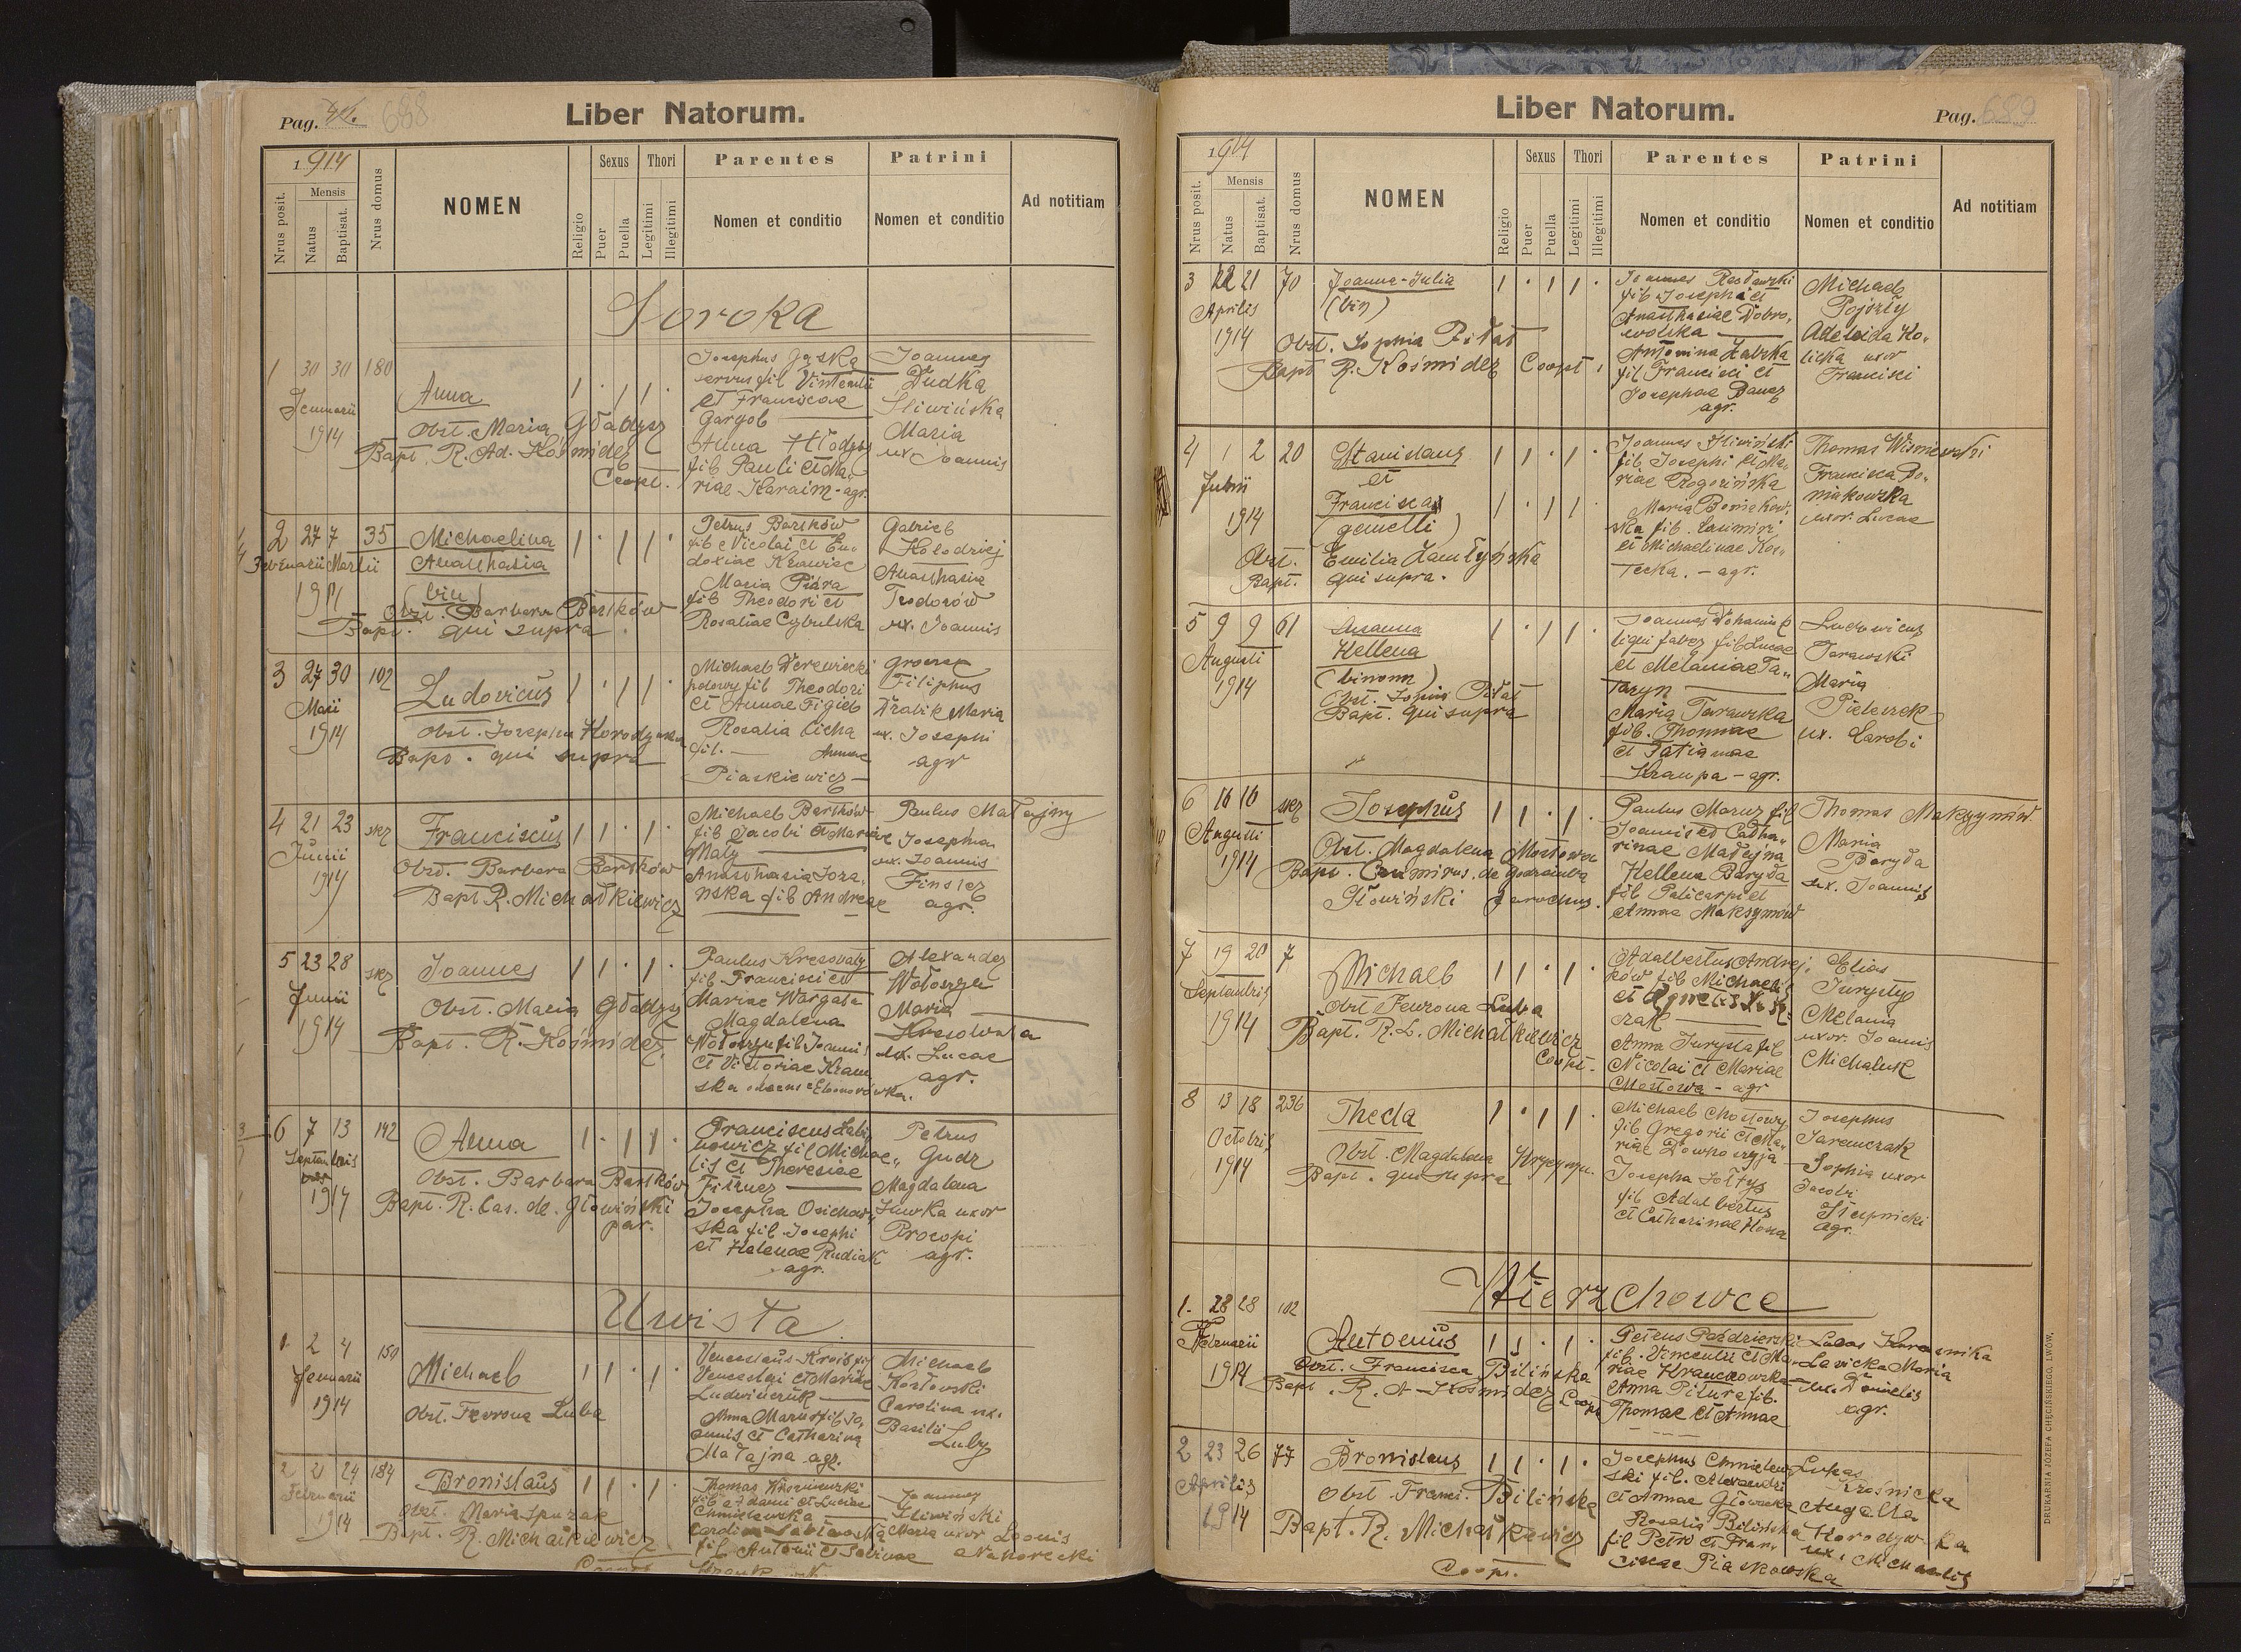 Pag. 688
Liber Natorum.
1914
Nrus posit.
Mensis
Natus
Baptisat.
Nrus domus
NOMEN
Religio
Sexus
Puer
Puella
Thori
Legitimi
Illegitimi
Parentes
Nomen et conditio
Patrini
Nomen et conditio
Ad notitiam
Soroka
1 30 30 180
Januarii
1914
Anna
Obst. Maria Gładysz
Bapt. R. Ad. Kośmider
Coopt.
Josephus Gąska
servus fil Vintentii
et Franciscae
Gargol
Anna Hłodysz
fil Pauli et Ma
riae Karaim - agr.
Joannes
Dudka
Sliwińska
Maria
ux Joannis
2 27 7 35
Februarii Martii
1914
Michaelina
Anasthasia
(bin)
Obst. Barbara Bartków
Bapt. qui supra
Petrus Bartków
fil Nicolai et Eu
doxiae Krawiec
Maria Piára
fil Theodori et
Rosaliae Cybulska
Gabriel
Kołodziej
Anasthasia
Teodorów
ux. Joannis
3 27 30 102
Maii
1914
Ludovicus
Obst. Josepha Horodyska
Bapt. qui supra
Michael Derewiecki
polowy fil Theodori
et Annae Figiel
Rosalia Cicha
fil. — Annae
Piaskiewicz
Filiphus
Drabik Maria
ux. Josephi
agr
4 21 23 skr
Junii
1914
Franciscus
Obst. Barbara Bartków
Bapt R. Michałkiewicz
Michael Bartków
fil Jacobi et Mariae
Mały
Anasthasia
fil Andreae
Paulus Matajny
Josepha
ux. Joannis
Finster
agr.
5 23 28 skr
Junii
1914
Joannes
Obst. Maria Gładysz
Bapt. R. Kośmider
Paulus Kresovaty
fil Francisci et
Mariae Wargata
Magdalena
Wołoszyn fil Joannis
et Victoriae
Alexander
Wołoszyn
Maria
Kresowata
ux. Lucae
agr.
6 7 13 142
Septembris
1914
Anna
Obst. Barbara Bartków
Bapt. R. Cas. de Głowiński
par.
Franciscus
fil Michae
lis et Theresiae
Fitzner
Josepha
ska fil Josephi
et Helenae Rudiak
agr.
Petrus
Gudz
Magdalena
Sawka uxor
Procopi
agr.
Uwisła
1. 2 4 150
Januarii
1914
Michael
Obst. Fevrona Luba
Venceslaus Krois fil
Venceslai et Mariae
Ludwinczuk
Anna Mazur fil Jo
annis et Catharina
Matajna agr.
Michael
Kosłowski
Carolina ux.
Basilii
Luby
2 21 24 184
Februarii
1914
Bronislaus
Obst. Maria Spuzak
Bapt. R. Michałkiewicz
Coopt.
Thomas
fil Adami et Luciae
Chmielewska
fil Antonii et
Joannes
Sliwiński
Maria uxor Leonis
Nahorecki
Liber Natorum.
Pag. 689
1914
Nrus posit.
Mensis
Natus
Baptisat.
Nrus domus
NOMEN
Religio
Sexus
Puer
Puella
Thori
Legitimi
Illegitimi
Parentes
Nomen et conditio
Patrini
Nomen et conditio
Ad notitiam
3 21 70
Aprilis
1914
Joanna-Julia
(bin)
Obst. Sophia Piłat
Bapt R. Kośmider Coopt.
Joannes
fil Josephi et
Anasthasiae Dobro
wolska
Antonina Zabska
fil Francisci et
Josephae
agr.
Michael
Pojszły
Adelaida Ko
licka uxor
Francisci
4 1 2 20
Julii
1914
Stanislaus
et
Francisca
(gemelli)
Obst. Emilia Zamłyńska
Bapt. qui supra.
Joannes Sliwiński
fil Josephi et Ma
riae Rogozińska
Maria
ska fil. Casimiri
et Michaelinae Kos
tecka. - agr.
Thomas Wiśniewski
Francisca Po
niakowska
uxor. Lucae
5 9 9 61
Augusti
1914
Susanna
Hellena
(binom)
Obst. Sophia Piłat
Bapt. qui supra
Joannes
fil Lucae
et Melaniae Ta
taryn
Maria Tarawska
fil. Thomae
et Tatianae
Kraupa - agr.
Ludovicus
Tarawski
Maria
ux. Caroli
6 16 16 skr
Augusti
1914
Josephus
Obst. Magdalena Mostowa
Bapt. Casimirus de Godziemba
Głowiński parochus.
Paulus Mazur fil
Joannis et Catha
rinae Matejna
Hellena Baryda
fil Policarpi et
Annae Maksymów
Thomas Maksymów
Maria
Baryda
ux. Joannis
7 19 20 7
Septembris
1914
Michael
Obst Fevrona Luba
Bapt. R. L. Michałkiewicz
Coopt.
Adalbertus Andrej
ków fil Michaelis
Anna Jurysta fil
Nicolai et Mariae
Mostowa - agr
Elias
Jurysty
Melania
uxor Joannis
Michaluk
8 13 18 236
Octobris
1914
Theda
Obst. Magdalena
Bapt. qui supra
Michael Chostowy
fil Gregorii et Ma
riae
Josepha Sołtys
fil Adalbertus
et Catharinae
Josephus
Jaremczak
Sophia uxor
Jacobi
Stepnicki
agr.
Wierzchowce
1. 28 28 102
Februarii
1914
Antonius
Obst. Francisca Bilińska
Bapt. R. A. Kośmider Coopt
Petrus Pazdzierski
fil. Vincentii et Ma
riae
Anna Pitura fil.
Thomae et Annae
Lucas
Maria
ux. Danielis
agr.
2 23 26 77
Aprilis
1914
Bronislaus
Obst Franci. Bilińska
Bapt. R. Michałkiewicz
Coopt.
Josephus Chmielew
ski fil. Alexandri
et Annae Głowacka
Rosalia Bilińska
fil Petri et Fran
ciscae Piaskowska
Lukas
Krasnicka
Angella
Horodyw
ux. Michaelis
DRUKARNIA JÓZEFA CHĘCIŃSKIEGO, LWÓW.